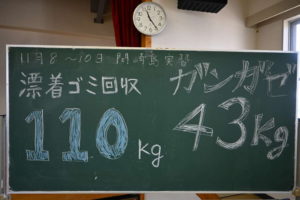 11月8〜10日 門崎島実習
漂着ゴミ回収
110kg
ガンガゼ
43kg